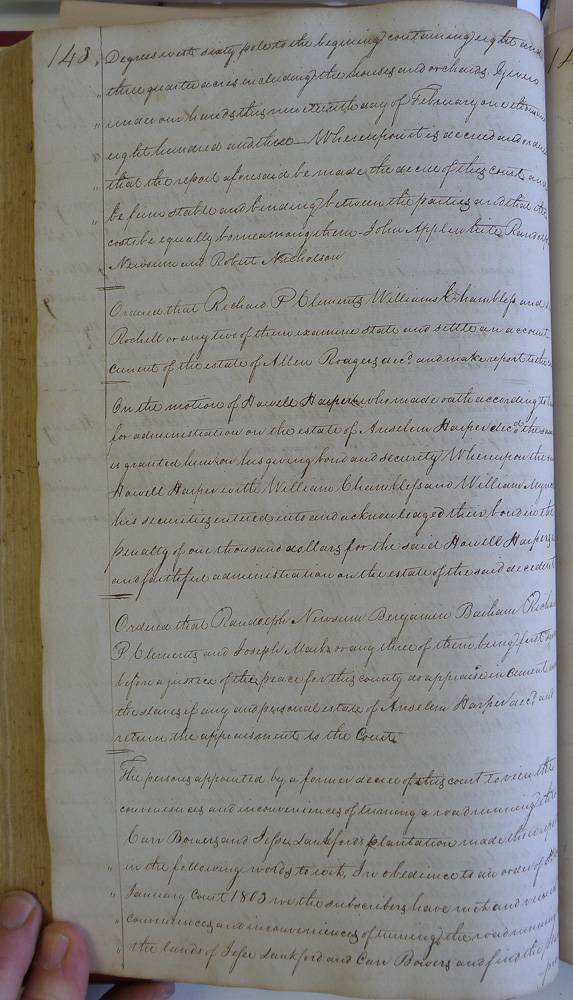 143
Degrees west sixty pole to the begining containing eight and
three quarter acres including the houses and orchards. Given
under our hands this nineteenth day of February one thousand
eight hundred and three — Whereupon it is decreed and ordered
that the report aforesaid be made the decree of this court and
be firm stable and binding between the parties and that the
costs be equally borne among them - John Applewhite Randolph
Newsum and Robert Nicholson
Ordered that Richard P Clements Williams Chambless and
Rochell or any two of them examine state and settle an account
current of the estate of Allen Roagers decd. and make report to the
On the motion of Howell Harper who made oath according to law
for administration on the estate of Anselm Harper decd. the same
is granted him on his giving bond and security Whereupon the
Howell Harper with William Chambless and William Myrick
his securities entered into and acknowledged their bond in the
penalty of one thousand dollars for the said Howell Harpers
and faithful administration on the estate of the said decedent
Ordered that Randolph Newsum Benjamin Barham Richard
P Clements and Joseph Marks or any three of them being first sworn
before a justice of the peace for this county do appraise in current
the slaves if any and personal estate of Anselm Harper decd. and
return the appraisment to the Court
The persons appointed by a former decree of this court to view the
conveniences and inconveniences of turning a road running thro
Carr Bowers and Jesse Lankfords plantation made their report
in the following words to wit, In obedience to an order of
January Court 1803 we the subscribers have met and viewed
conveniences and inconveniences of turning the road running
the lands of Jesse Lankford and Carr Bowers and find the